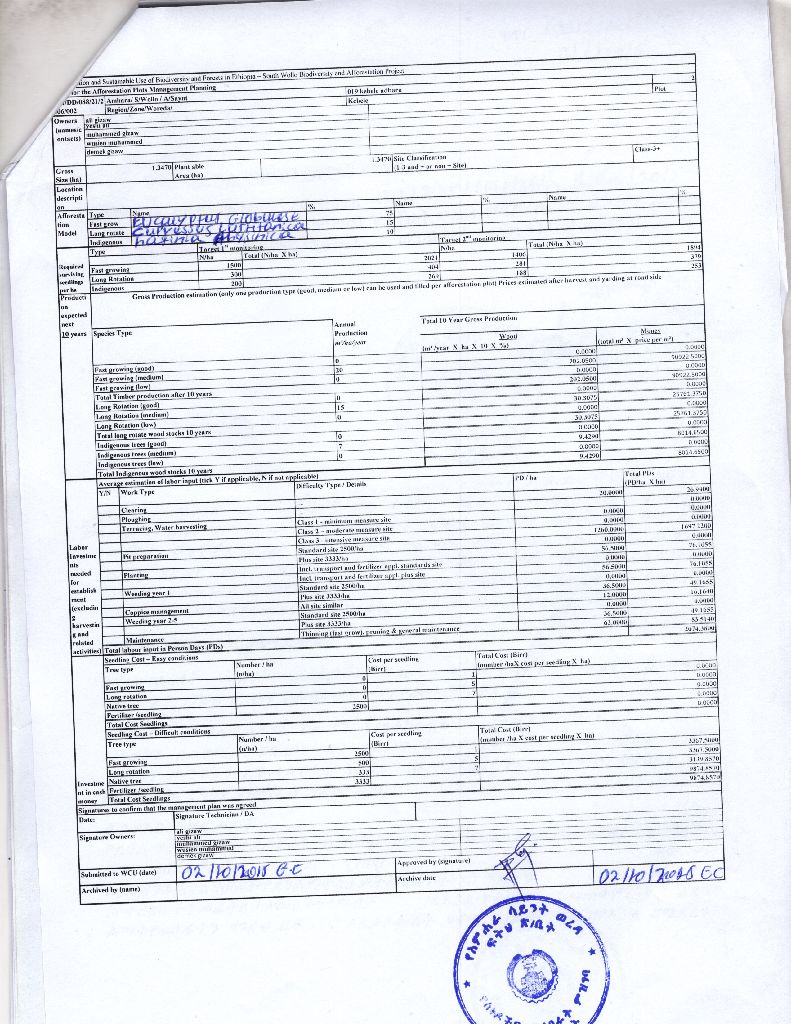 tion and Sustainable Use of Biodiversity and Forests in Ethiopia – South Wollo Biodiversity and Afforestation Project
or the Afforestation Plots Management Planning
Amhara/ S/Wello / A/Saynt 019 kebele adhara Plot 2
Region/Zone/Woreda/ Kebele
Owners ali gizaw
yeshi ali
muhammed gizaw
wusien muhammed
demek gizaw
Gross Size (ha) 1.3470 Plant able Area (ha) 1.3470 Site Classification (1-3 and + or non = Site) Class-3+
Location descripti on
Afforesta tion Model
Type Name % Name % Name %
Fast grow Eucalyptus Globulese 75
Long rotate Cupressus Lusitanica 15
Indigenous hajinia Abysinica 10
Required surviving seedlings per ha
Type Target 1st monitoring Target 2nd monitoring
N/ha Total (N/ha X ha) N/ha Total (N/ha X ha)
Fast growing 1500 2021 1406 1894
Long Rotation 300 404 281 379
Indigenous 200 269 188 253
Gross Production estimation (only one production type (good, medium or low) can be used and filled per afforestation plot) Prices estimated after harvest and yarding at road side
Producti on expected next 10 years
Species Type Annual Production m³/ha/year Total 10 Year Gross Production
Wood (m³/year X ha X 10 X %) Money (total m³ X price per m³)
Fast growing (good) 0 0.0000 0.0000
Fast growing (medium) 20 202.0500 90922.5000
Fast growing (low) 0 0.0000 0.0000
Total Timber production after 10 years 202.0500 90922.5000
Long Rotation (good) 0 0.0000 0.0000
Long Rotation (medium) 15 30.3075 25761.3750
Long Rotation (low) 0 0.0000 0.0000
Total long rotate wood stocks 10 years 30.3075 25761.3750
Indigenous trees (good) 0 0.0000 0.0000
Indigenous trees (medium) 7 9.4290 8014.6500
Indigenous trees (low) 0 0.0000 0.0000
Total Indigenous wood stocks 10 years 9.4290 8014.6500
Average estimation of labor input (tick Y if applicable, N if not applicable)
Y/N Work Type Difficulty Type / Details PD / ha Total PDs (PD/ha X ha)
Labor Investme nts needed for establish ment (excludin g harvestin g and related activities)
Clearing 20.0000 26.9400
Ploughing 0.0000
Terracing, Water harvesting Class 1 - minimum measure site 0.0000 0.0000
Class 2 – moderate measure site 0.0000 0.0000
Class 3 - intensive measure site 1260.0000 1697.2200
Pit preparation Standard site 2500/ha 0.0000 0.0000
Plus site 3333/ha 56.5000 76.1055
Planting Incl. transport and fertilizer appl. standards site 0.0000 0.0000
Incl. transport and fertilizer appl. plus site 56.5000 76.1055
Weeding year 1 Standard site 2500/ha 0.0000 0.0000
Plus site 3333/ha 36.5000 49.1655
Coppice management All site similar 12.0000 16.1640
Weeding year 2-5 Standard site 2500/ha 0.0000 0.0000
Plus site 3333/ha 36.5000 49.1655
Maintenance Thinning (fast grow), pruning & general maintenance 62.0000 83.5140
Total labour input in Person Days (PDs) 2074.3800
Seedling Cost – Easy conditions
Tree type Number / ha (n/ha) Cost per seedling (Birr) Total Cost (Birr) (number /haX cost per seedling X ha)
Fast growing 0 1 0.0000
Long rotation 0 5 0.0000
Native tree 0 7 0.0000
Fertilizer /seedling 2500 0.0000
Total Cost Seedlings 0.0000
Seedling Cost – Difficult conditions
Tree type Number / ha (n/ha) Cost per seedling (Birr) Total Cost (Birr) (number /ha X cost per seedling X ha)
Fast growing 2500 3367.5000
Long rotation 500 5 3367.5000
Native tree 333 7 3139.8570
Fertilizer /seedling 3333 9874.8570
Total Cost Seedlings 9874.8570
Investme nt in cash money
Signatures to confirm that the management plan was agreed
Date: Signature Technician / DA
Signature Owners: ali gizaw
yeshi ali
muhammed gizaw
wusien muhammed
demek gizaw
Submitted to WCU (date) 02/10/2015 E.C Approved by (signature)
Archived by (name) Archive date 02/10/2015 EC
የአምሓራ ሳይንት ወረዳ
ፍትህ ጽ/ቤት